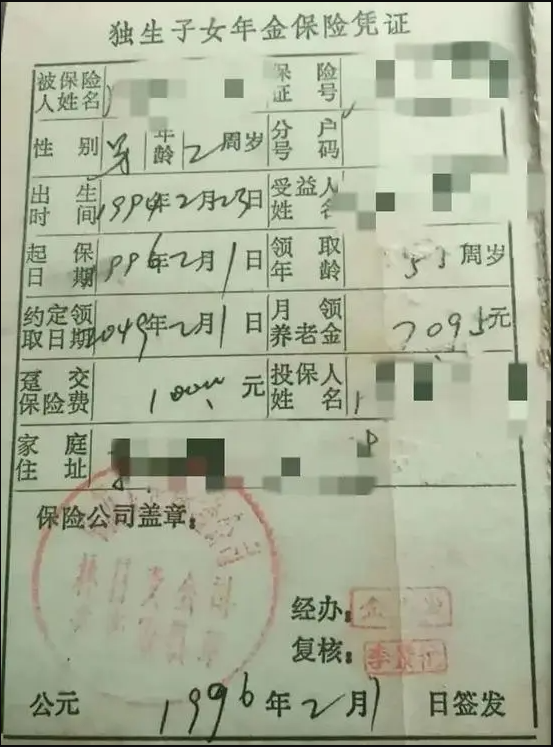 独生子女年金保险凭证
被保险人姓名 保险证号
性别 男 年龄 2周岁 分户号码
出生时间 1994年2月23日 受益人姓名
起保日期 1996年2月1日 领取年龄 55周岁
约定领取日期 2049年2月1日 月领养老金 7095元
趸交保险费 10000元 投保人姓名
家庭住址
保险公司盖章：
经办：
复核：
公元 1996年2月1日签发